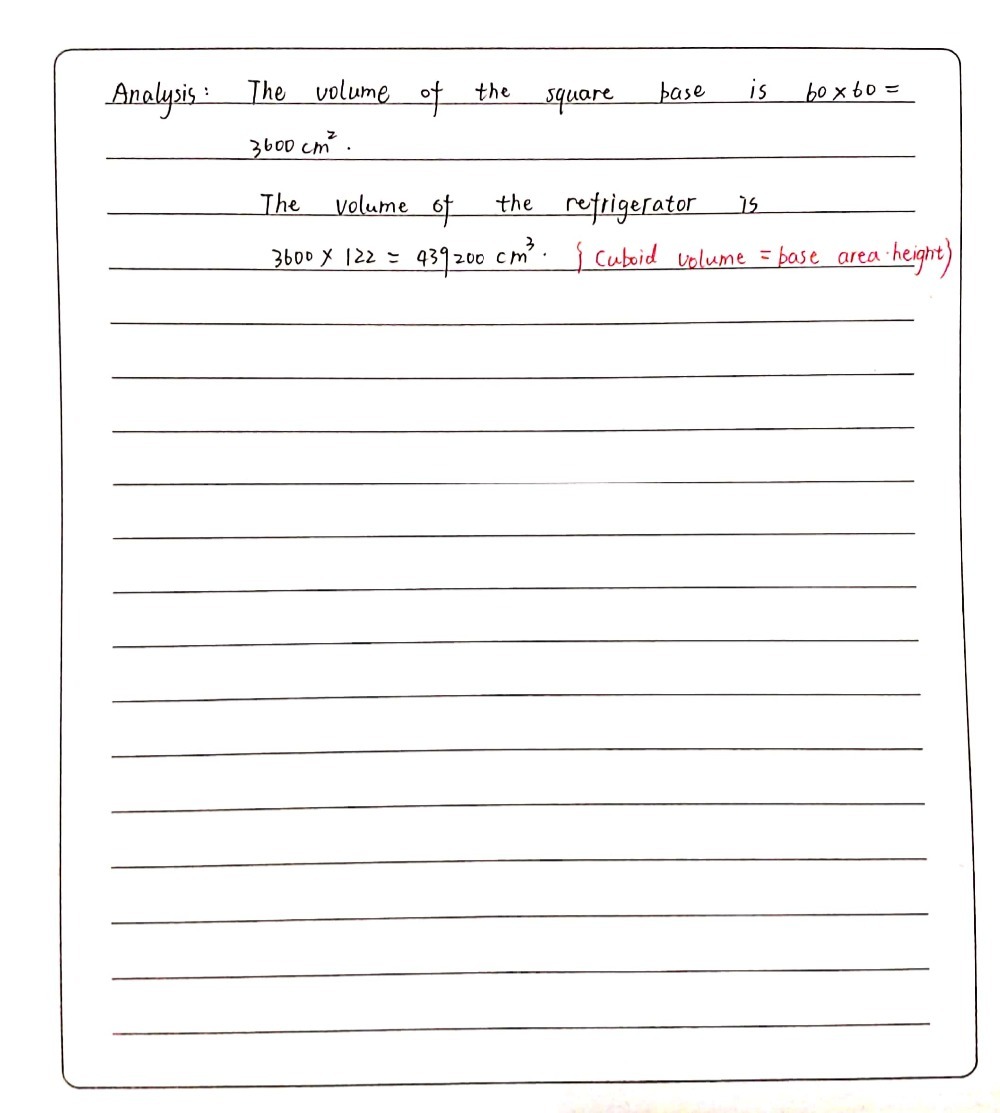 Analysis: The volume of the square base is 60 × 60 =
3600 cm².
The volume of the refrigerator is
3600 × 122 = 439200 cm³. { Cuboid volume = base area·height}